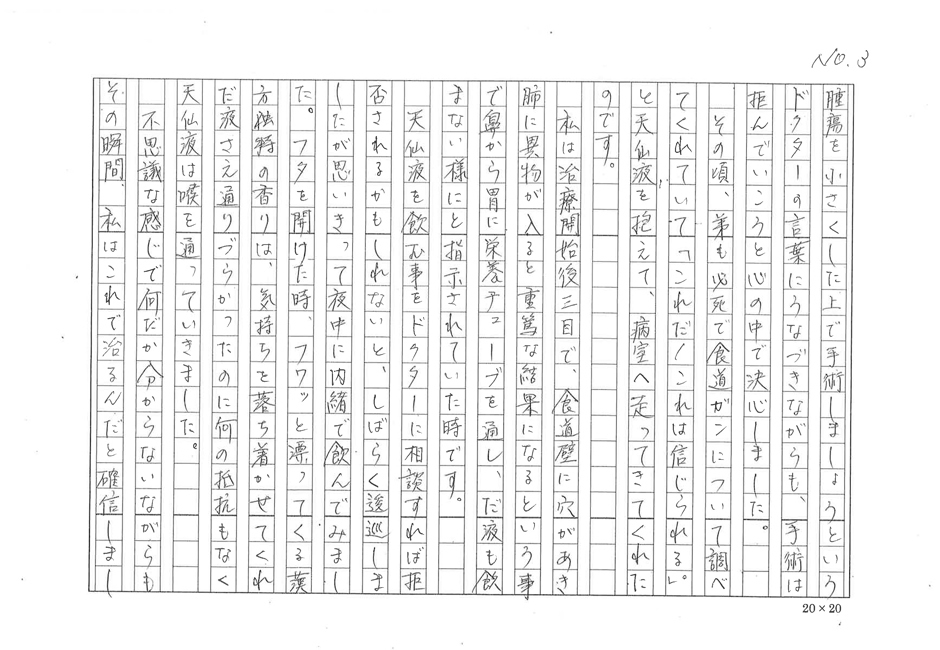 NO.3
腫瘍を小さくした上で手術しましょうという
ドクターの言葉にうなづきながらも、手術は
拒んでいこうと心の中で決心しました。
その頃、弟も必死で食道ガンについて調べ
てくれていて「これだ!これは信じられる」
と天仙液を抱えて、病室へ走ってきてくれた
のです。
私は治療開始後三日で、食道壁に穴があき
肺に異物が入ると重篤な結果になるという事
で鼻から胃に栄養チューブを通し、だ液も飲
まない様にと指示されていた時です。
天仙液を飲む事をドクターに相談すれば拒
否されるかもしれないと、しばらく逡巡しま
したが思いきって夜中に内緒で飲んでみまし
た。フタを開けた時、フワッと漂ってくる漢
方独特の香りは、気持ちを落ち着かせてくれ
だ液さえ通りづらかったのに何の抵抗もなく
天仙液は喉を通っていきました。
不思議な感じで何だか分からないながらも
その瞬間、私はこれで治るんだと確信しまし
20×20